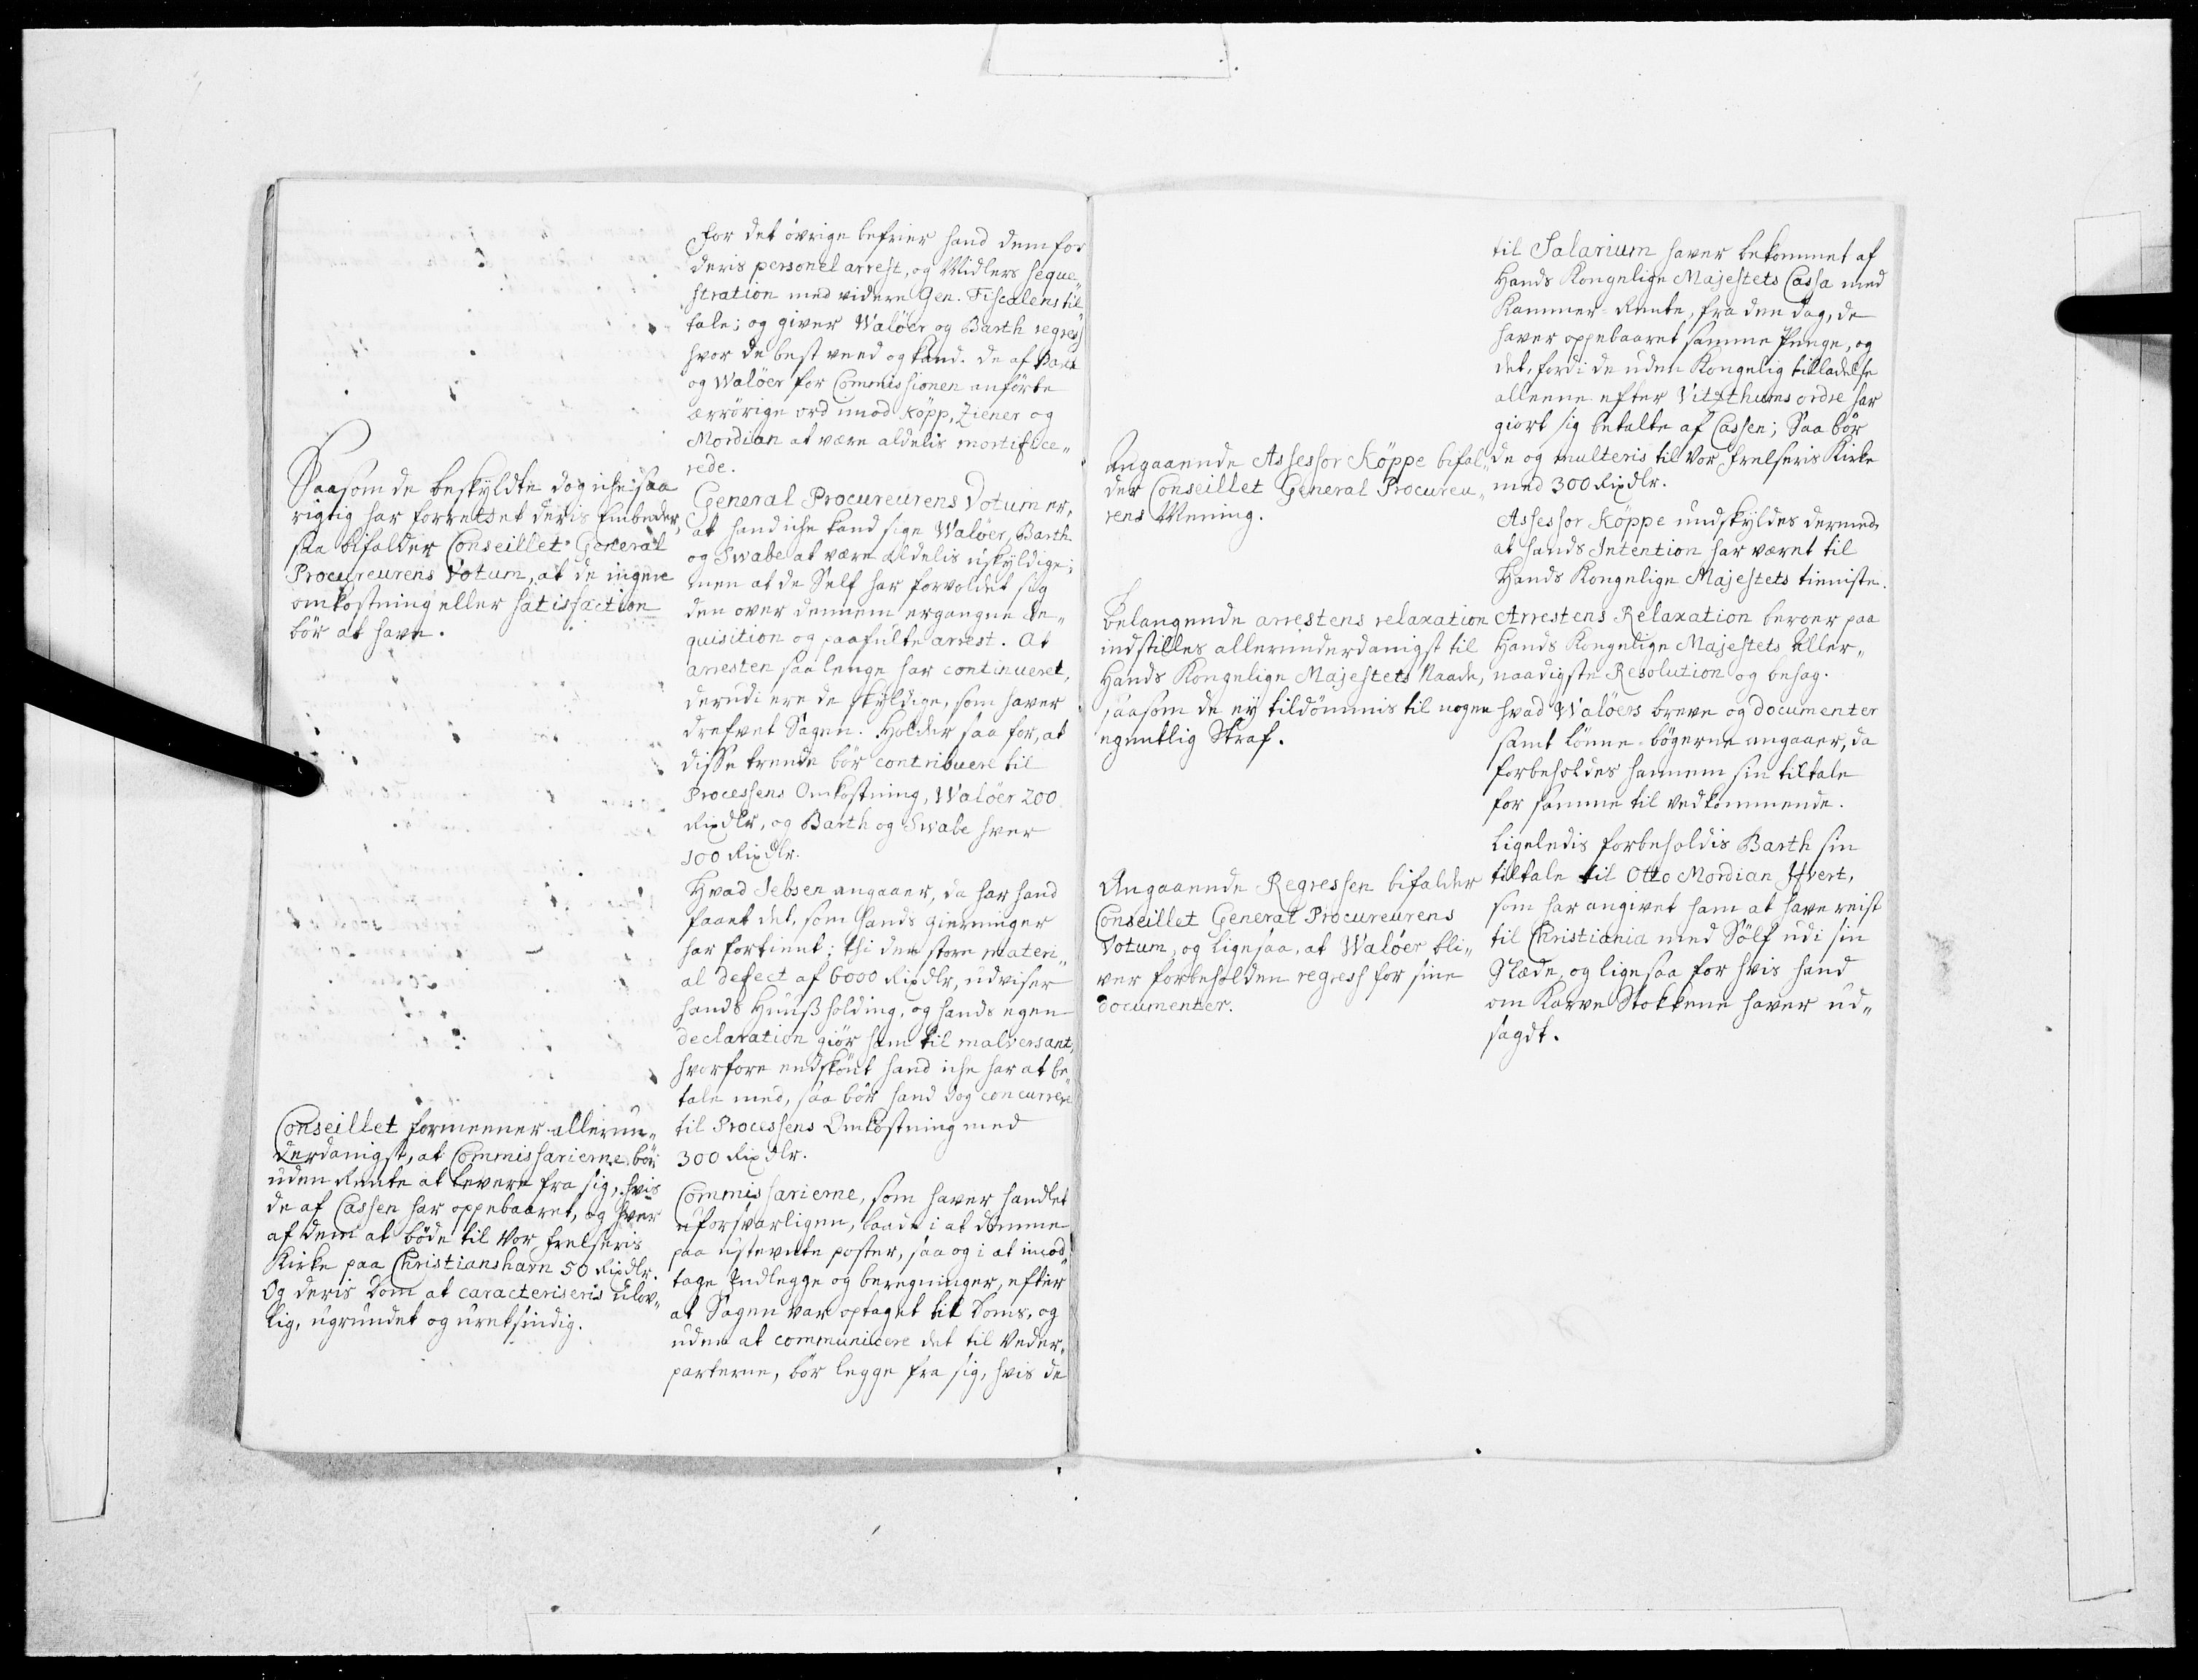 Saasom de beskyldte dog iche saa
rigtig har forrettet deris Embeder,
saa bifalder Conseillet General
Procureurens Votum, at de ingen
omkostning eller satisfaction
bör at have.
Conseillet formeener allerun„
derdanigst, at Commissarierne bör
uden Rente at levere fra sig, hvis
de af Cassen har oppebaaret, og hver
af dem at böde til Vor Frelseris
Kirke paa Christianshavn 50 Rixdlr.
Og deris Dom at caracteriseris ulov„
lig, ugrundet og uretsindig.
For det övrige befrier hand dem for
deris personel arrest, og Midlers seque„
stration med videre Gen. Fiscalens til„
tale; og giver Walöer og Barth regress
hvor de best veed og kand. De af Barth
og Walöer for Commissionen anförte
ærrörige ord imod Köpp, Ziener og
Mordian at være aldelis mortifice„
rede.
General Procureurens Votum er,
at hand iche kand sige Walöer, Barth
og Swabe at være aldelis uskyldige;
men at de Self har forvoldet sig
den over dennem ergangne In„
quisition og paafulte arrest. At
arresten saa lenge har continueret,
derudi ere de skyldige, som haver
drefvet Sagen. Holder saa for, at
disse trende bör contribuere til
Processens Omkostning, Walöer 200
Rixdlr, og Barth og Swabe hver
100 Rixdlr.
Hvad Jebsen angaaer, da har hand
faaet det, som hands gierninger
har fortient; thi den store materi„
al defect af 6000 Rixdlr, udviser
hands Huußholding, og hands egen
declaration giör ham til malversant,
hvorfore endskönt hand iche har at be„
tale med, saa bör hand dog concurrere
til Processens Omkostning med
300 Rixdlr.
Commissarierne, som haver handlet
uforsvarligen, baade i at dömme
paa ustevnte poster, saa og i at imod„
tage Indlegge og beregninger, efter
at Sagen var optaget til Doms, og
uden at communicere det til Veder„
parterne, bör legge fra sig, hvis de
Angaaende Assessor Köppe bifal„
der Conseillet General Procureu„
rens Mening.
Belangende arrestens relaxation
indstilles allerunderdanigst til
Hands Kongelige Majestets Naade,
saasom de ey tildömmis til nogen
egentlig Straf.
Angaaende Regressen bifalder
Conseillet General Procureurens
Votum, og ligesaa, at Walöer bli„
ver forbeholden regress for sine
documenter.
til Salarium haver bekommet af
Hands Kongelige Majestets Cassa med
Kammer-Rente, fra den dag, de
haver oppebaaret samme Penge, og
det, fordi de uden Kongelig tilladelse
alleene efter Vitzthums ordre har
giort sig betalte af Cassen; Saa bör
de og multeris til Vor Frelseris Kirke
med 300 Rixdlr.
Assessor Köppe undskyldes dermed,
at hands Intention har været til
Hands Kongelige Majestets tieniste.
Arrestens Relaxation beroer paa
Hands Kongelige Majestets Aller„
naadigste Resolution og behag.
Hvad Walöers breve og documenter
samt Lönne-bögerne angaaer, da
forbeholdes hannem sin tiltale
for samme til vedkommende.
Ligeledis forbeholdis Barth sin
tiltale til Otto Mordian Hvert,
som har angivet ham at have reist
til Christiania med Sölf udi sin
Slæde, og ligesaa for hvis hand
om Karve Stokkene haver ud„
sagdt.